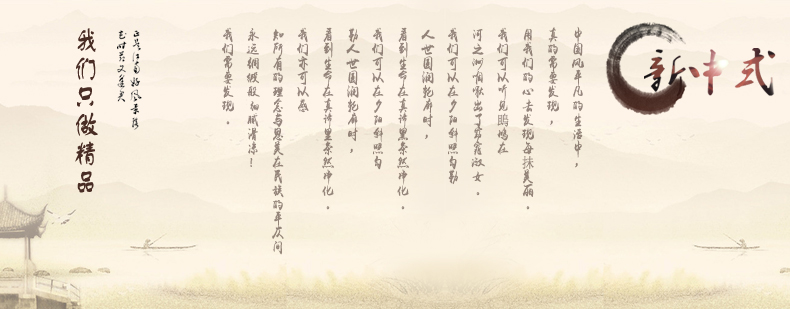 新中式
中国风平凡的生活中，
真的常要发现，
用我们的心去发现每抹美丽。
我们可以听见鸥鸠在
河之洲、唱出了窈窕淑女。
我们可以在夕阳斜照勾勒
人世困润乾麻时，
看到生命在真许里袅然净化。
我们可以在夕阳斜照勾
勒人世困润乾麻时，
看到生命在真许里袅然净化。
我们亦可以感
知所有的理念与思美在民族的平仄间
永远绸缎般细腻滑凉！
我们常要发现。
正是江南好风景
我们只做精品